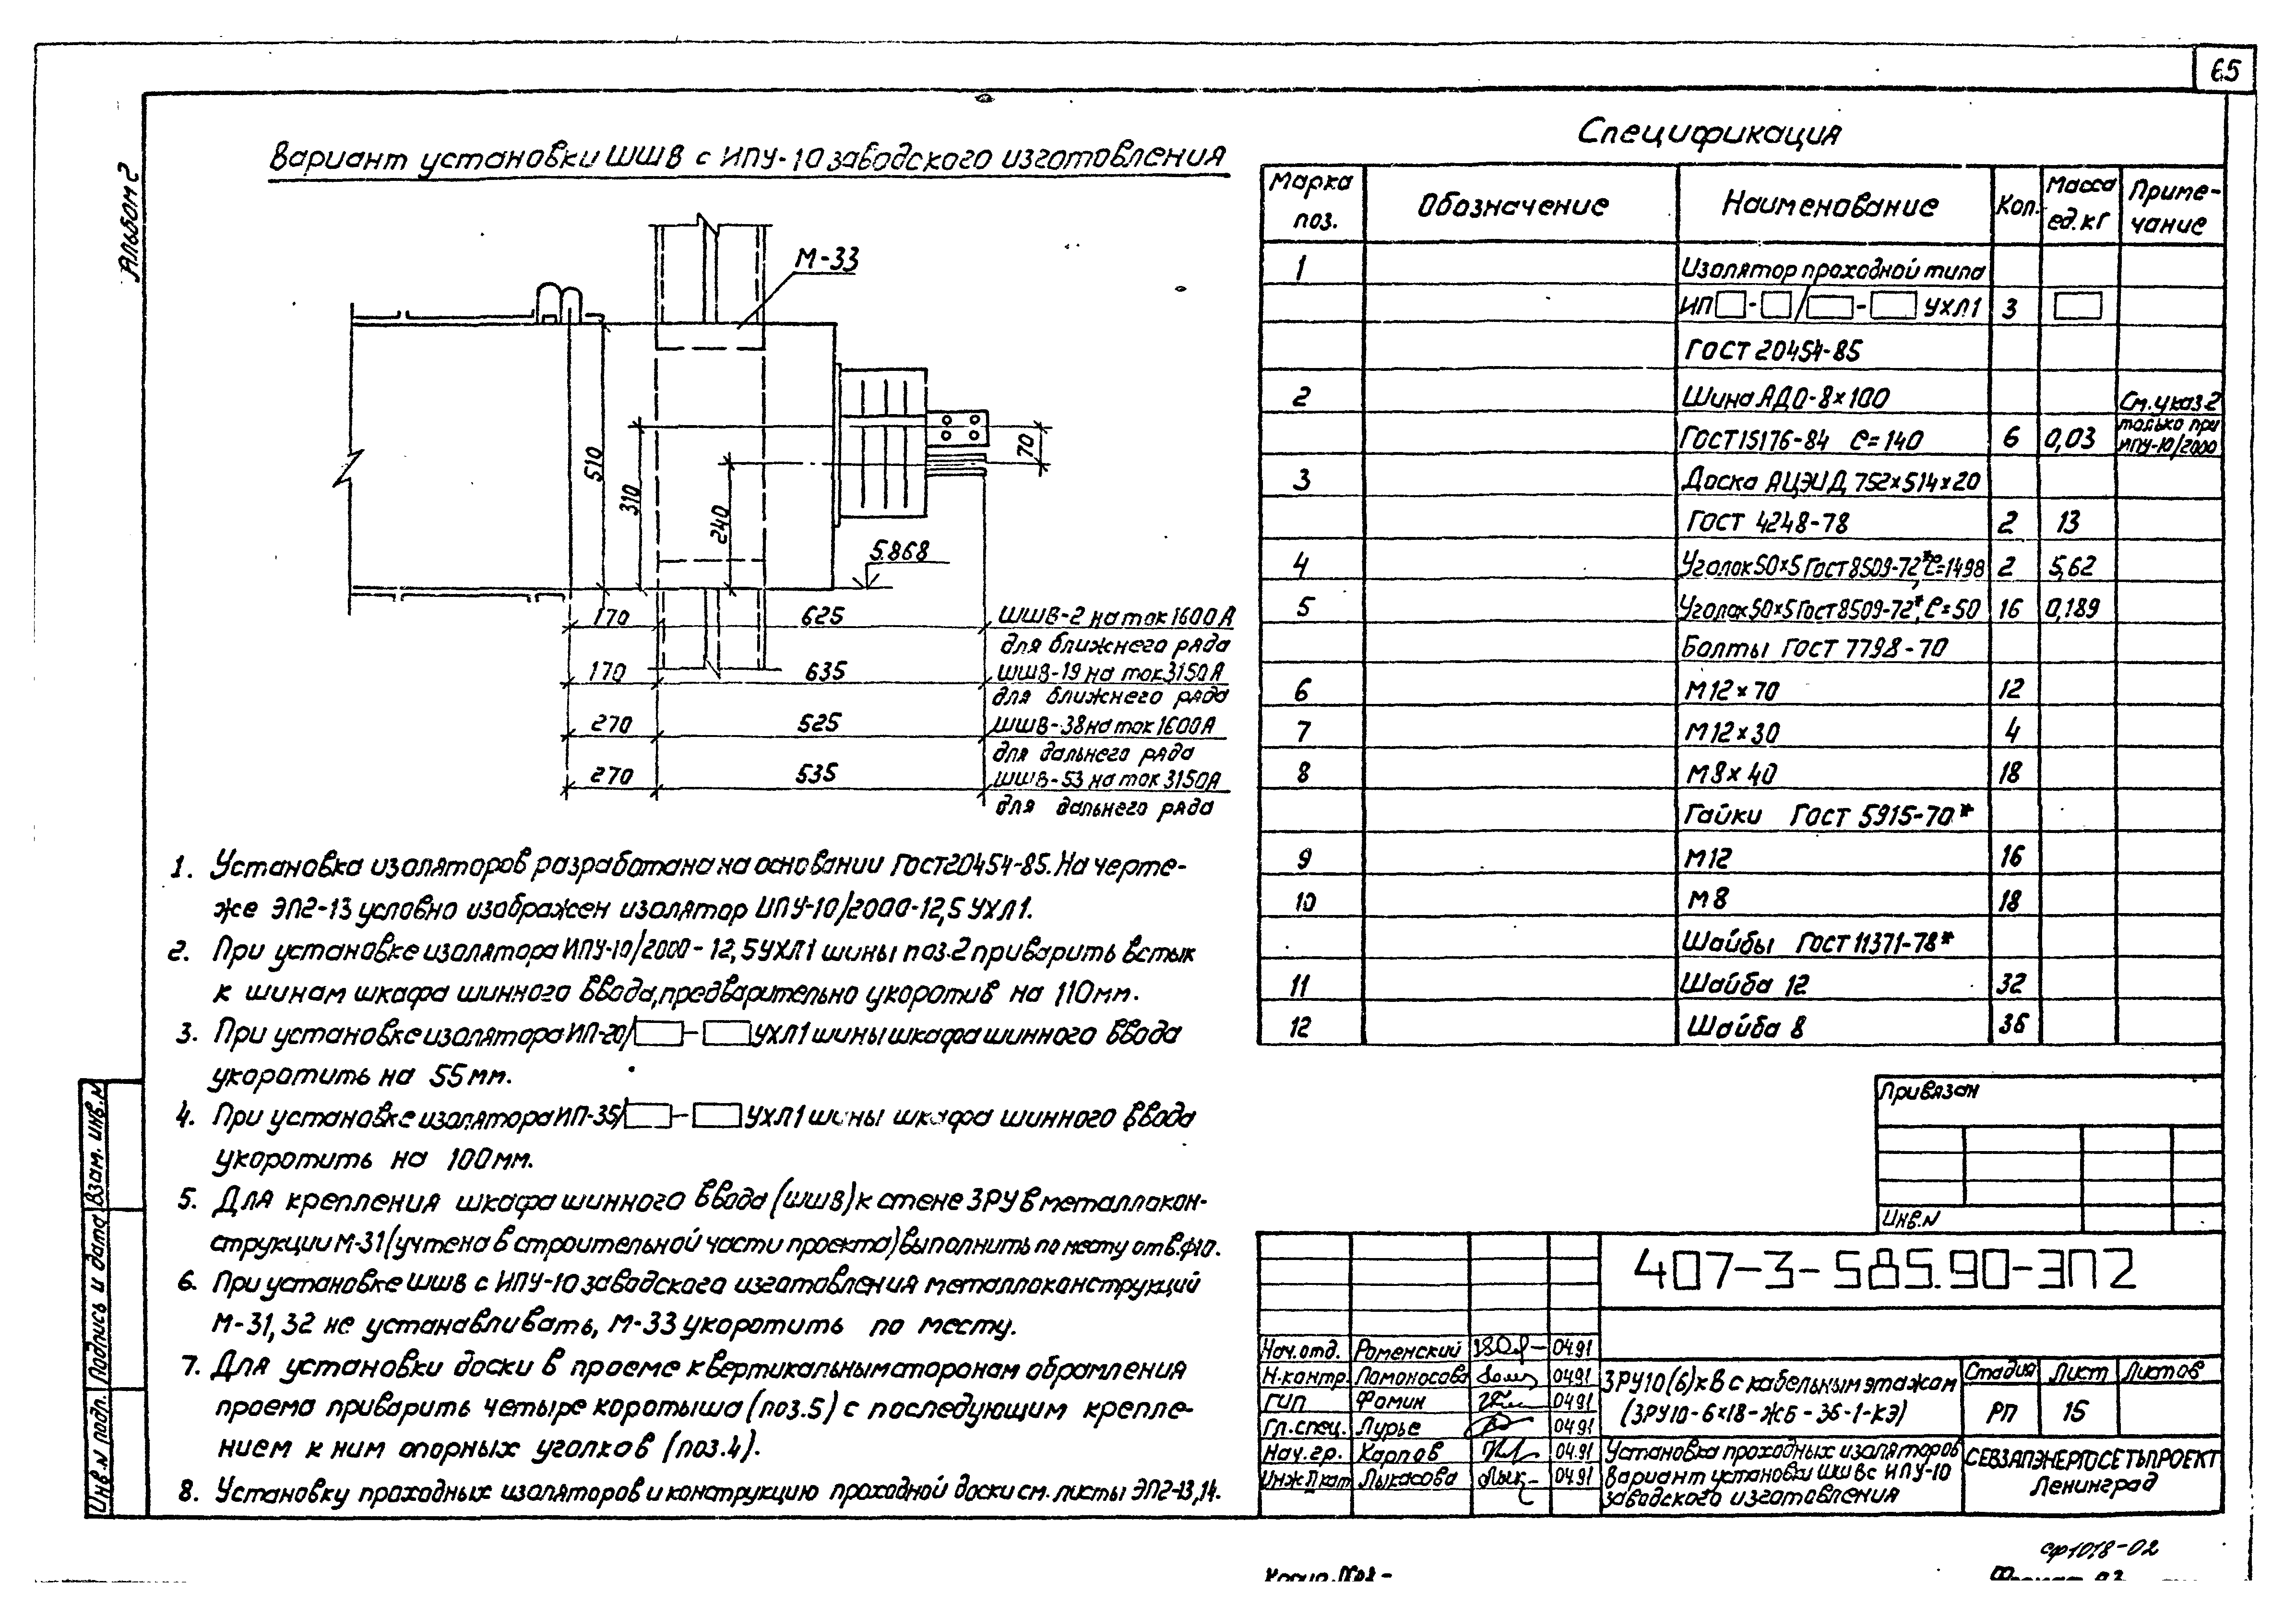 65
Альбом 2
Вариант установки ШШВ с ИПУ-10 заводского изготовления
М-33
510
310
240
70
5.868
170 625 ШШВ-2 на ток 1600А
для ближнего ряда
170 635 ШШВ-19 на ток 3150А
для ближнего ряда
270 525 ШШВ-38 на ток 1600А
для дальнего ряда
270 535 ШШВ-53 на ток 3150А
для дальнего ряда
1. Установка изоляторов разработана на основании ГОСТ 20454-85. На черте-
же ЭП2-13 условно изображен изолятор ИПУ-10/2000-12,5 УХЛ1.
2. При установке изолятора ИПУ-10/2000-12,5 УХЛ1 шины поз.2 приварить встык
к шинам шкафа шинного ввода, предварительно укоротив на 110мм.
3. При установке изолятора ИП-20/□-□ УХЛ1 шины шкафа шинного ввода
укоротить на 55мм.
4. При установке изолятора ИП-35/□-□ УХЛ1 шины шкафа шинного ввода
укоротить на 100мм.
5. Для крепления шкафа шинного ввода (ШШВ) к стене ЗРУ в металлокон-
струкции М-31 (учтена в строительной части проекта) выполнить по месту отв. ф10.
6. При установке ШШВ с ИПУ-10 заводского изготовления металлоконструкций
М-31, 32 не устанавливать, М-33 укоротить по месту.
7. Для установки доски в проеме к вертикальным сторонам обрамления
проема приварить четыре коротыша (поз.5) с последующим крепле-
нием к ним опорных уголков (поз.4).
8. Установку проходных изоляторов и конструкцию проходной доски см. листы ЭП2-13,14.
Спецификация
Марка поз. Обозначение Наименование Кол. Масса ед.кг Приме-чание
1 Изолятор проходной типа
ИП□-□/□-□ УХЛ1 3 □
ГОСТ 20454-85
2 Шина АД0-8×100 См. указ.2
ГОСТ 15176-84 ℓ=140 6 0,03 только при ИПУ-10/2000
3 Доска АЦЭИД 752×514×20
ГОСТ 4248-78 2 13
4 Уголок 50×5 ГОСТ 8509-72*, ℓ=1498 2 5,62
5 Уголок 50×5 ГОСТ 8509-72*, ℓ=50 16 0,189
Болты ГОСТ 7798-70
6 М12×70 12
7 М12×30 4
8 М8×40 18
Гайки ГОСТ 5915-70*
9 М12 16
10 М8 18
Шайбы ГОСТ 11371-78*
11 Шайба 12 32
12 Шайба 8 36
Привязан
Инв.N
407-3-585.90-ЭП2
Нач.отд. Роменский 04.91
Н.контр. Ломоносова 04.91
ГИП Фомин 04.91
Гл.спец. Лурье 04.91
Нач.гр. Карпов 04.91
Инж.II кат. Лыкасова 04.91
ЗРУ10(6)кВ с кабельным этажом
(ЗРУ10-6×18-ЖБ-36-1-КЭ)
Стадия Лист Листов
РП 15
Установка проходных изоляторов
Вариант установки ШШВ с ИПУ-10
заводского изготовления
СЕВЗАПЭНЕРГОСЕТЬПРОЕКТ
Ленинград
Взам. инв.N
Подпись и дата
Инв.N подл.
сф1018-02